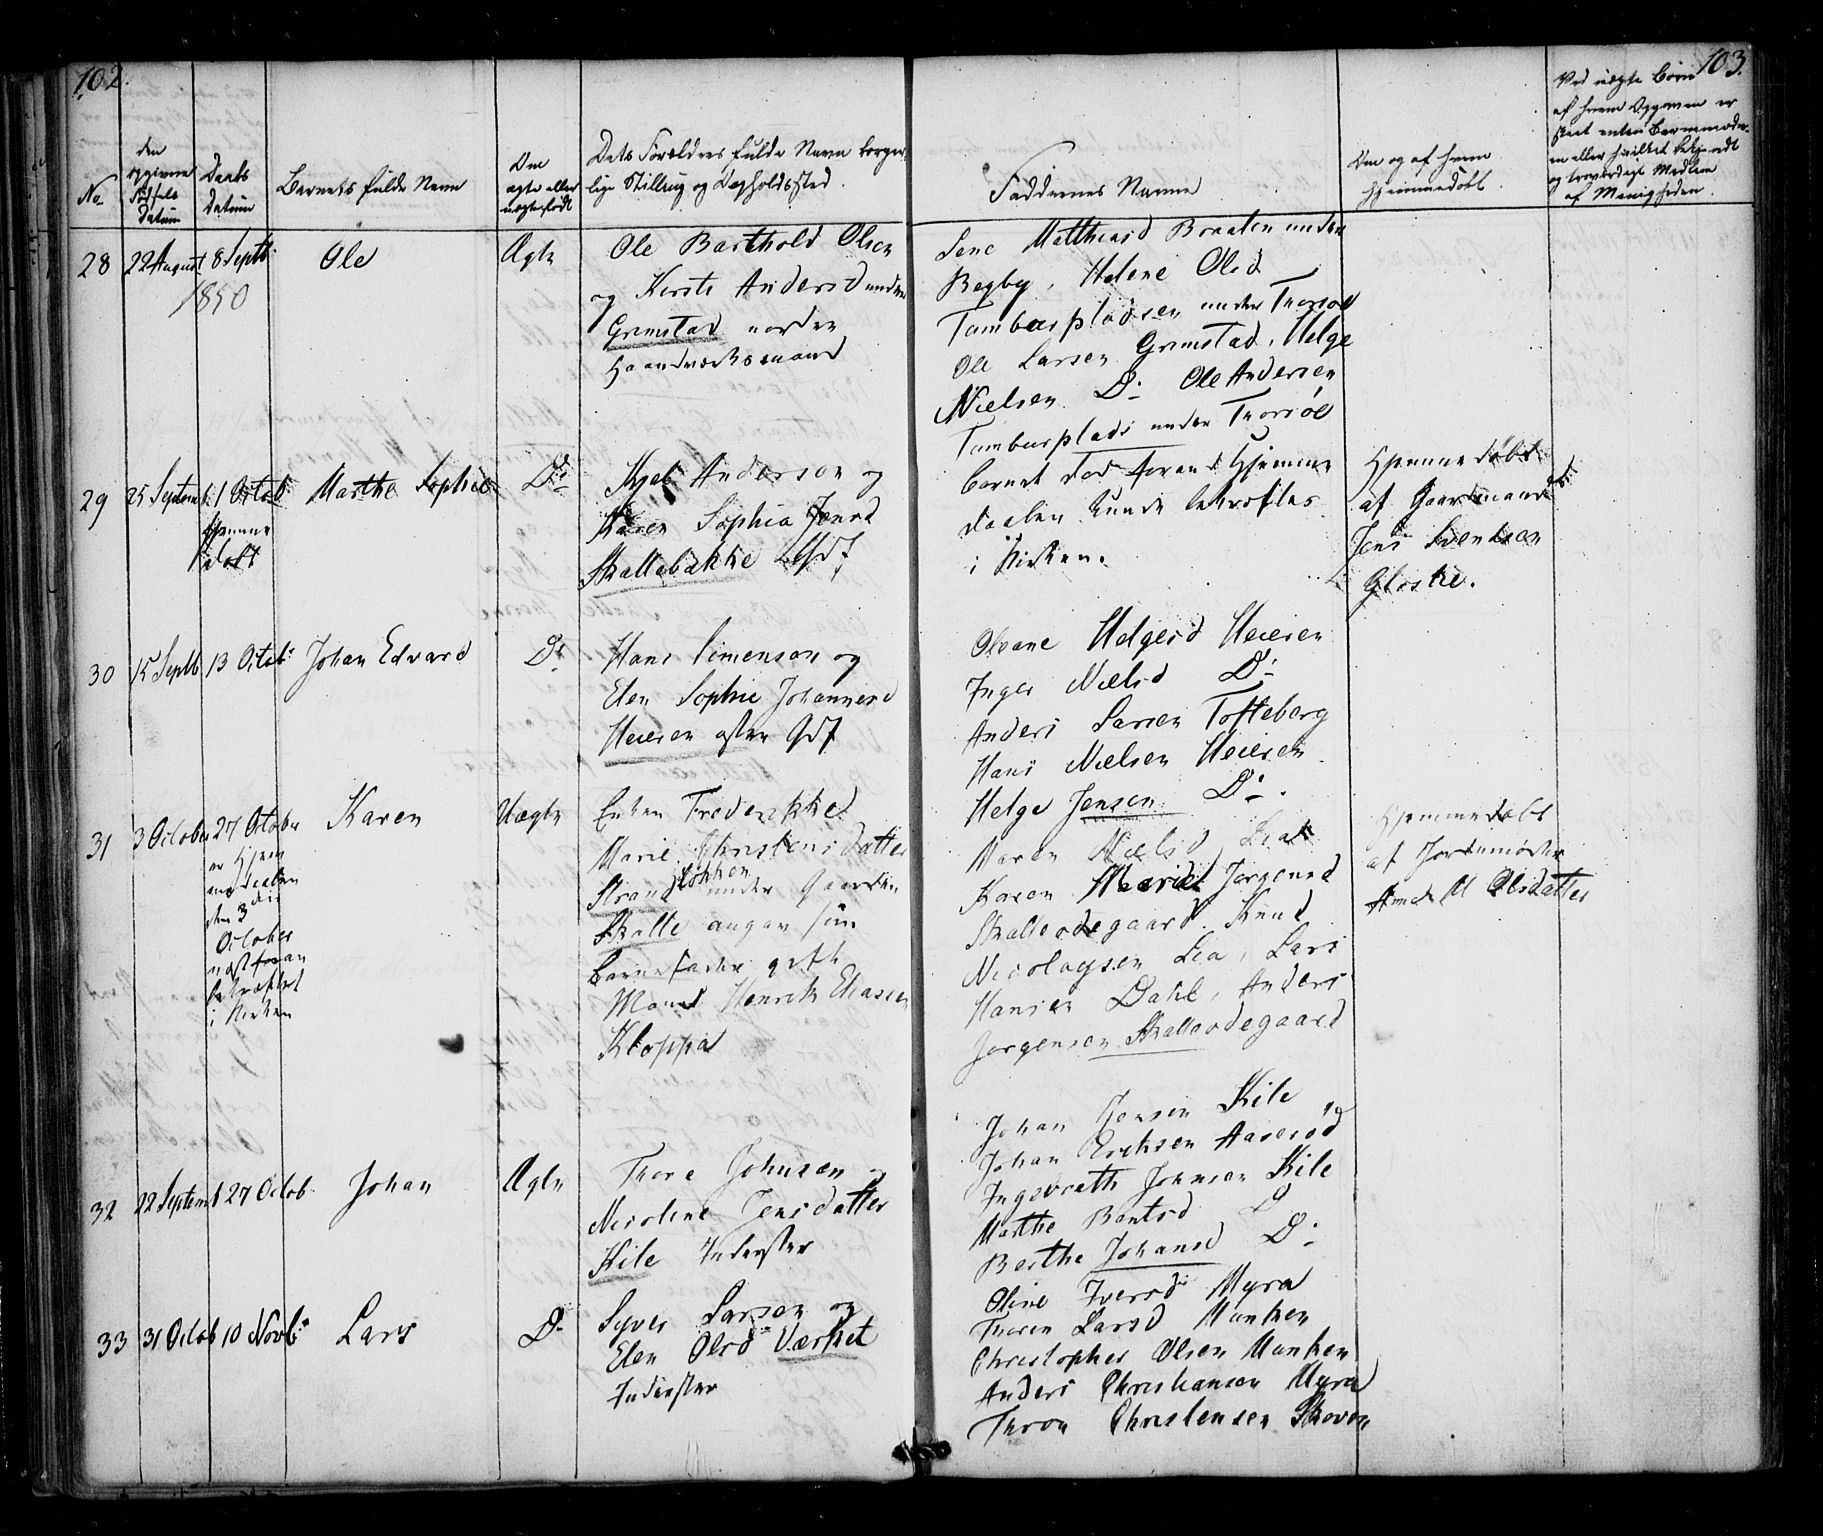 102.
103.
No
den
opgivne
Fødsels
datum
Daabs
datum
Barnets fulde Navn
Om
ægte eller
uægtefødt
Dets Forældres fulde Navn borger
lige Stilling og Opholdssted.
Faddernes Navne
Om og af hvem
hjemmedøbt
Ved uægte Børn
af hvem Opgaven er
skeet enten Barnemoder
en eller hvilket bekjendt
og troværdigt Medlem
af Menigheden.
28
22 August
8 Septb:
1850
Ole
Ægte
Ole Barthold Olsen
og Kirsti Andersd under
Grimstad norden
Haandværksmand
Lene Matthiasd Braaten under
Begby, Helene Olsd
Tamburpladsen under Thorsøe
Ole Larsen Grimstad, Helge
Nielsen Do Ole Andersen
Tamburplads under Thorsøe
29
25 Septemb:
1 Octob:
hjemme
døbt
Marthe Sophie
Do
Kjel Anderson og
Karen Sophia Jensd
Skallebakke Gdf
Barnet død førend Hjemme
daaben kunde bekræftes
i Kirken.
Hjemmedøbt
af Gaardmand
Jens Svendsen
Gloslie.
30
15 Septb
13 Octob:
Johan Edvard
Do
Hans Simenson og
Elen Sophie Johannesd
Heieren østen Gdf
Oleane Helgesd Heieren
Inger Nielsd Do
Anders Larsen Tofteberg
Hans Nielsen Heieren
Helge Jensen Do.
31
3 October
27 October
er Hjem
medaaben
den 3 die
October
næstforan
bekræftet
i Kirken
Karen
Uægte
Enken Frederikke
Marie Christensdatter
Strandløkken under Gaarden
Skalle angav som
Barnefader gift
Mand Henrik Eliasen
Kloppa
Maren Nielsd Lea
Karen Marie Jørgensd
Skalleødegaard Knud
Nicolaysen Lea, Lars
Hansen Dahl, Anders
Jørgensen Skalleødegaard
Hjemmedøbt
af Jordemoder
Anne M Olsdatter
32
22 Septemb
27 Octob.
Johan
Ægte
Thore Johnsen og
Nicoline Jensdatter
Kile Inderster
Johan Jensen Kile
Johan Ericksen Aaserød
Ingevrath Johnsen Kile
Marthe Bentsd
Berthe Johansd Do
33
31 Octob
10 Novb:
Lars
Do
Syver Larsen og
Elen Olsd Værket
Inderster
Oline Iversd Myra
Thoren Larsd Munken
Christopher Olsen Munken
Anders Christiansen Myra
Thron Christensen Skoven